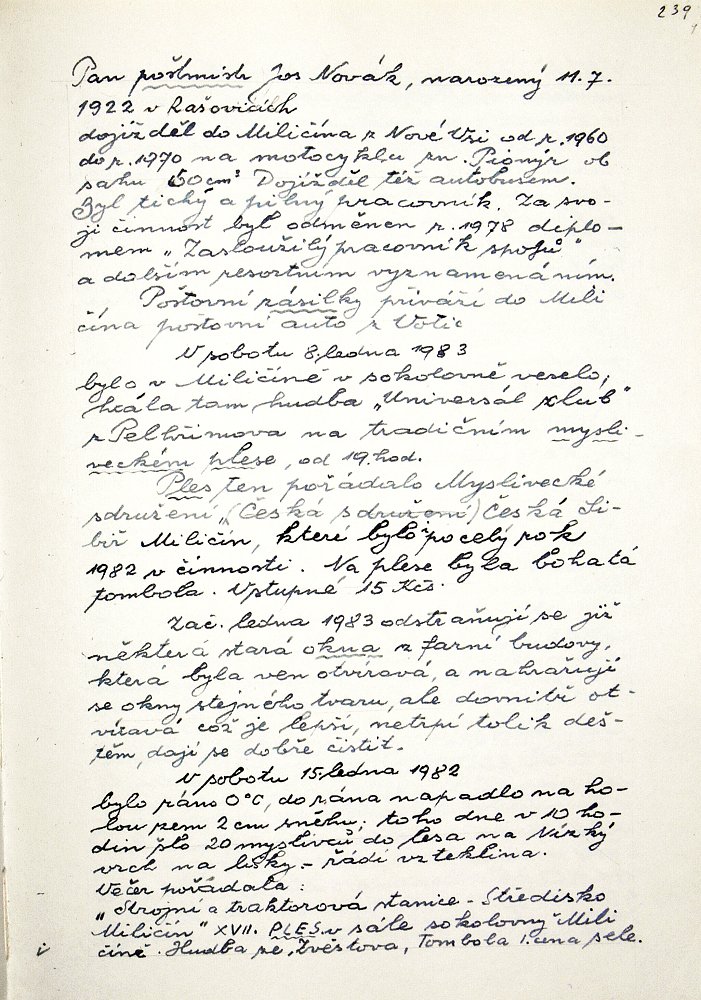 239
Pan poštmistr Jos Novák, narozený 11.7.
1922 v Rašovicích
dojížděl do Miličína z Nové Vsi od r. 1960
do r. 1970 na motocyklu zn. Pionýr ob
sahu 50 cm³ Dojížděl též autobusem.
Byl tichý a pilný pracovník. Za svo-
ji činnost byl odměněn r. 1978 diplo-
mem „Zasloužilý pracovník spojů"
a dalším resortním vyznamenáním.
Poštovní zásilky přiváží do Mili
čína poštovní auto z Votic
V sobotu 8. ledna 1983
bylo v Miličíně v sokolovně veselo,
hrála tam hudba „Universál klub"
z Pelhřimova na tradičním mysli-
veckém plese, od 19. hod.
Ples ten pořádalo Myslivecké
sdružení „(Česká sdružení) Česká Si-
biř Miličín, které bylo po celý rok
1982 v činnosti. Na plese byla bohatá
tombola. Vstupné 15 Kčs.
Zač. ledna 1983 odstraňují se již
některá stará okna z farní budovy,
která byla ven otvíravá, a nahražují
se okny stejného tvaru, ale dovnitř ot-
víravá což je lepší, netrpí tolik deš-
těm, dají se dobře čistit.
V sobotu 15. ledna 1982
bylo ráno 0°C, do rána napadlo na ho-
lou zem 2 cm sněhu; toho dne v 10 ho-
din šlo 20 myslivců do lesa na Nízký
vrch na lišky - řádí vzteklina.
Večer pořádala:
„Strojní a traktorová stanice - Středisko
Miličín" XVII. PLES v sále sokolovny Mili
číně. Hudba ze Zvěstova, Tombola 1. cena sele.